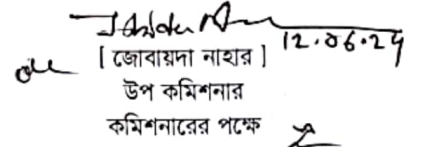 12.06.24
[ জোবায়দা নাহার ]
উপ কমিশনার
কমিশনারের পক্ষে